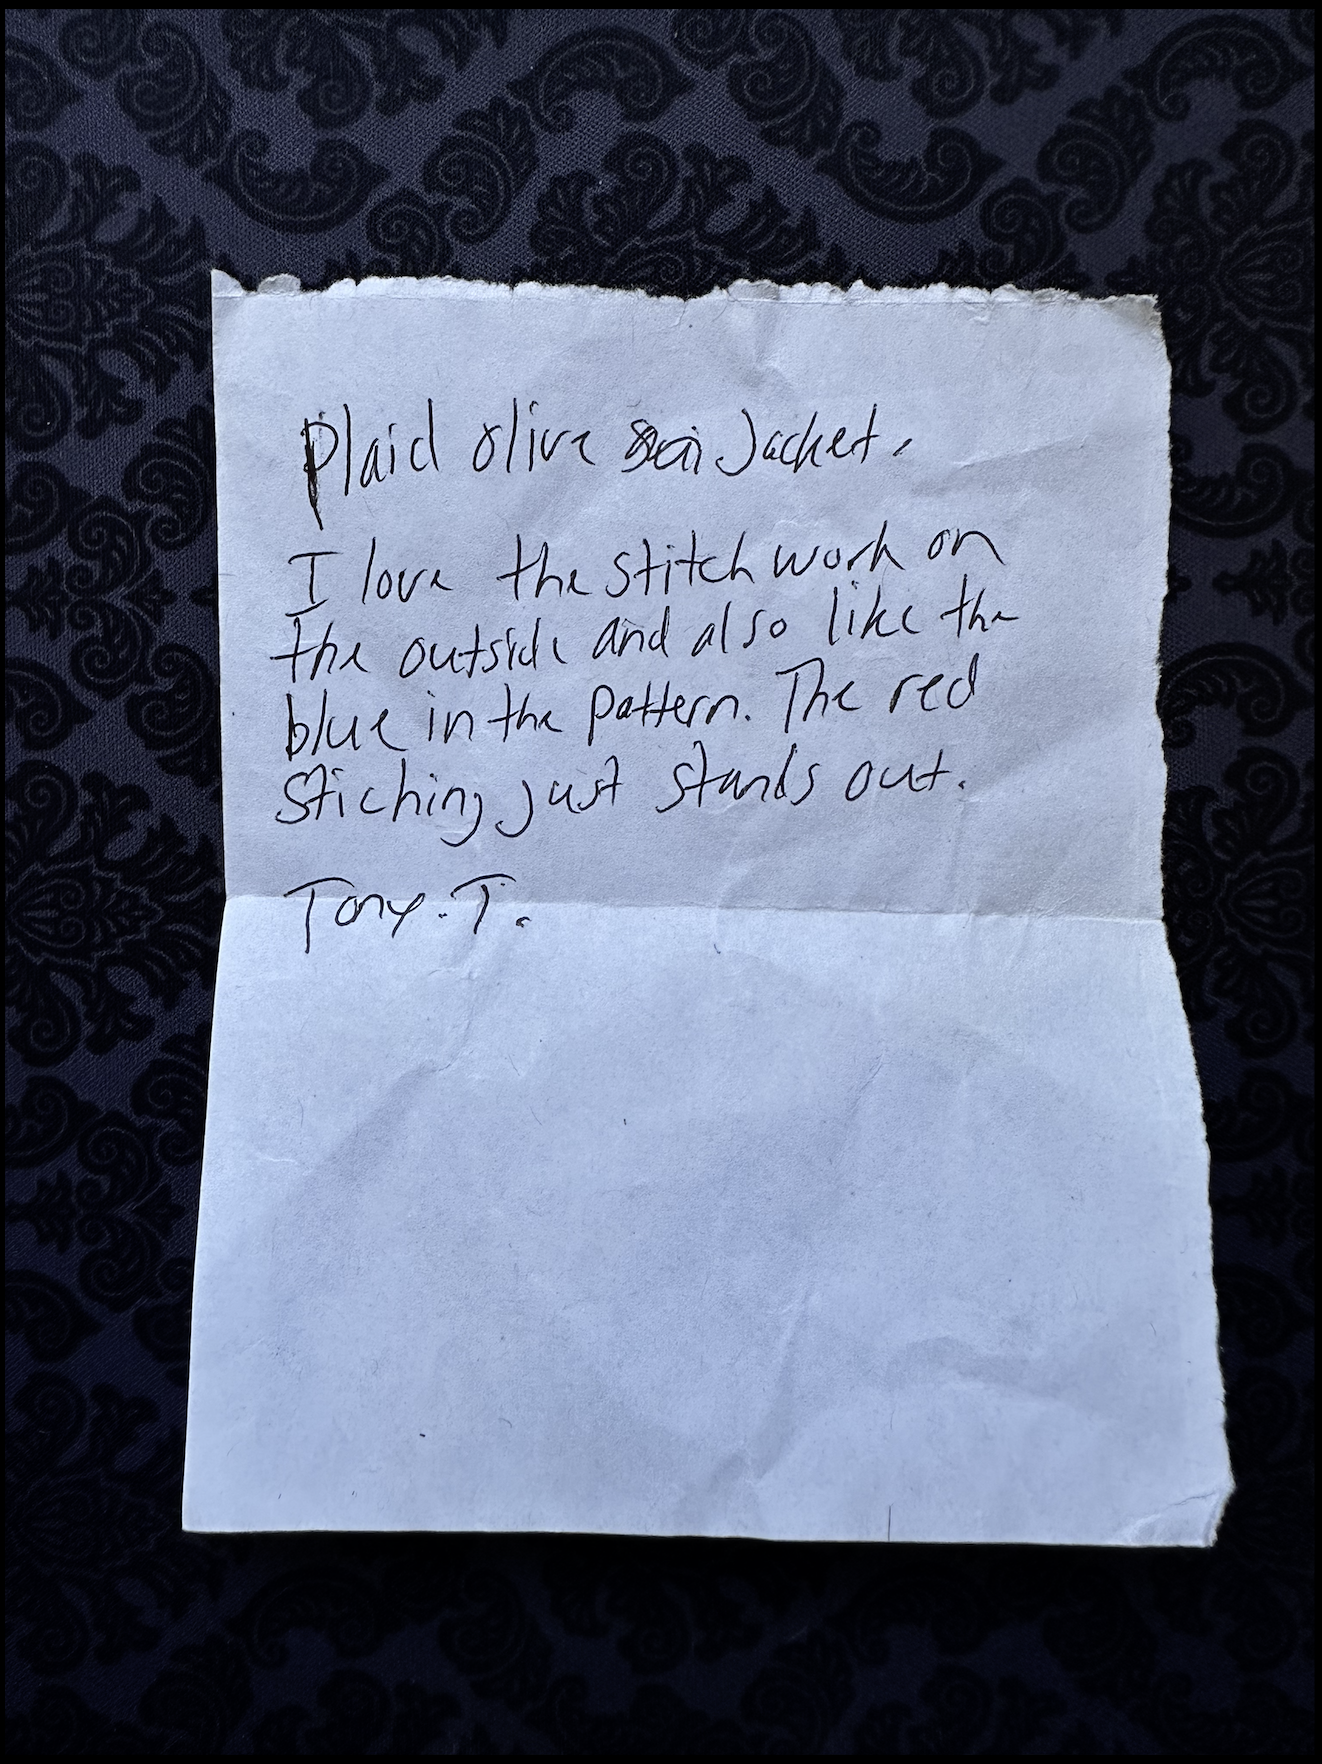 Plaid olive Jacket.
I love the stitch work on
the outside and also like the
blue in the pattern. The red
Stiching just stands out.
Tony. T.